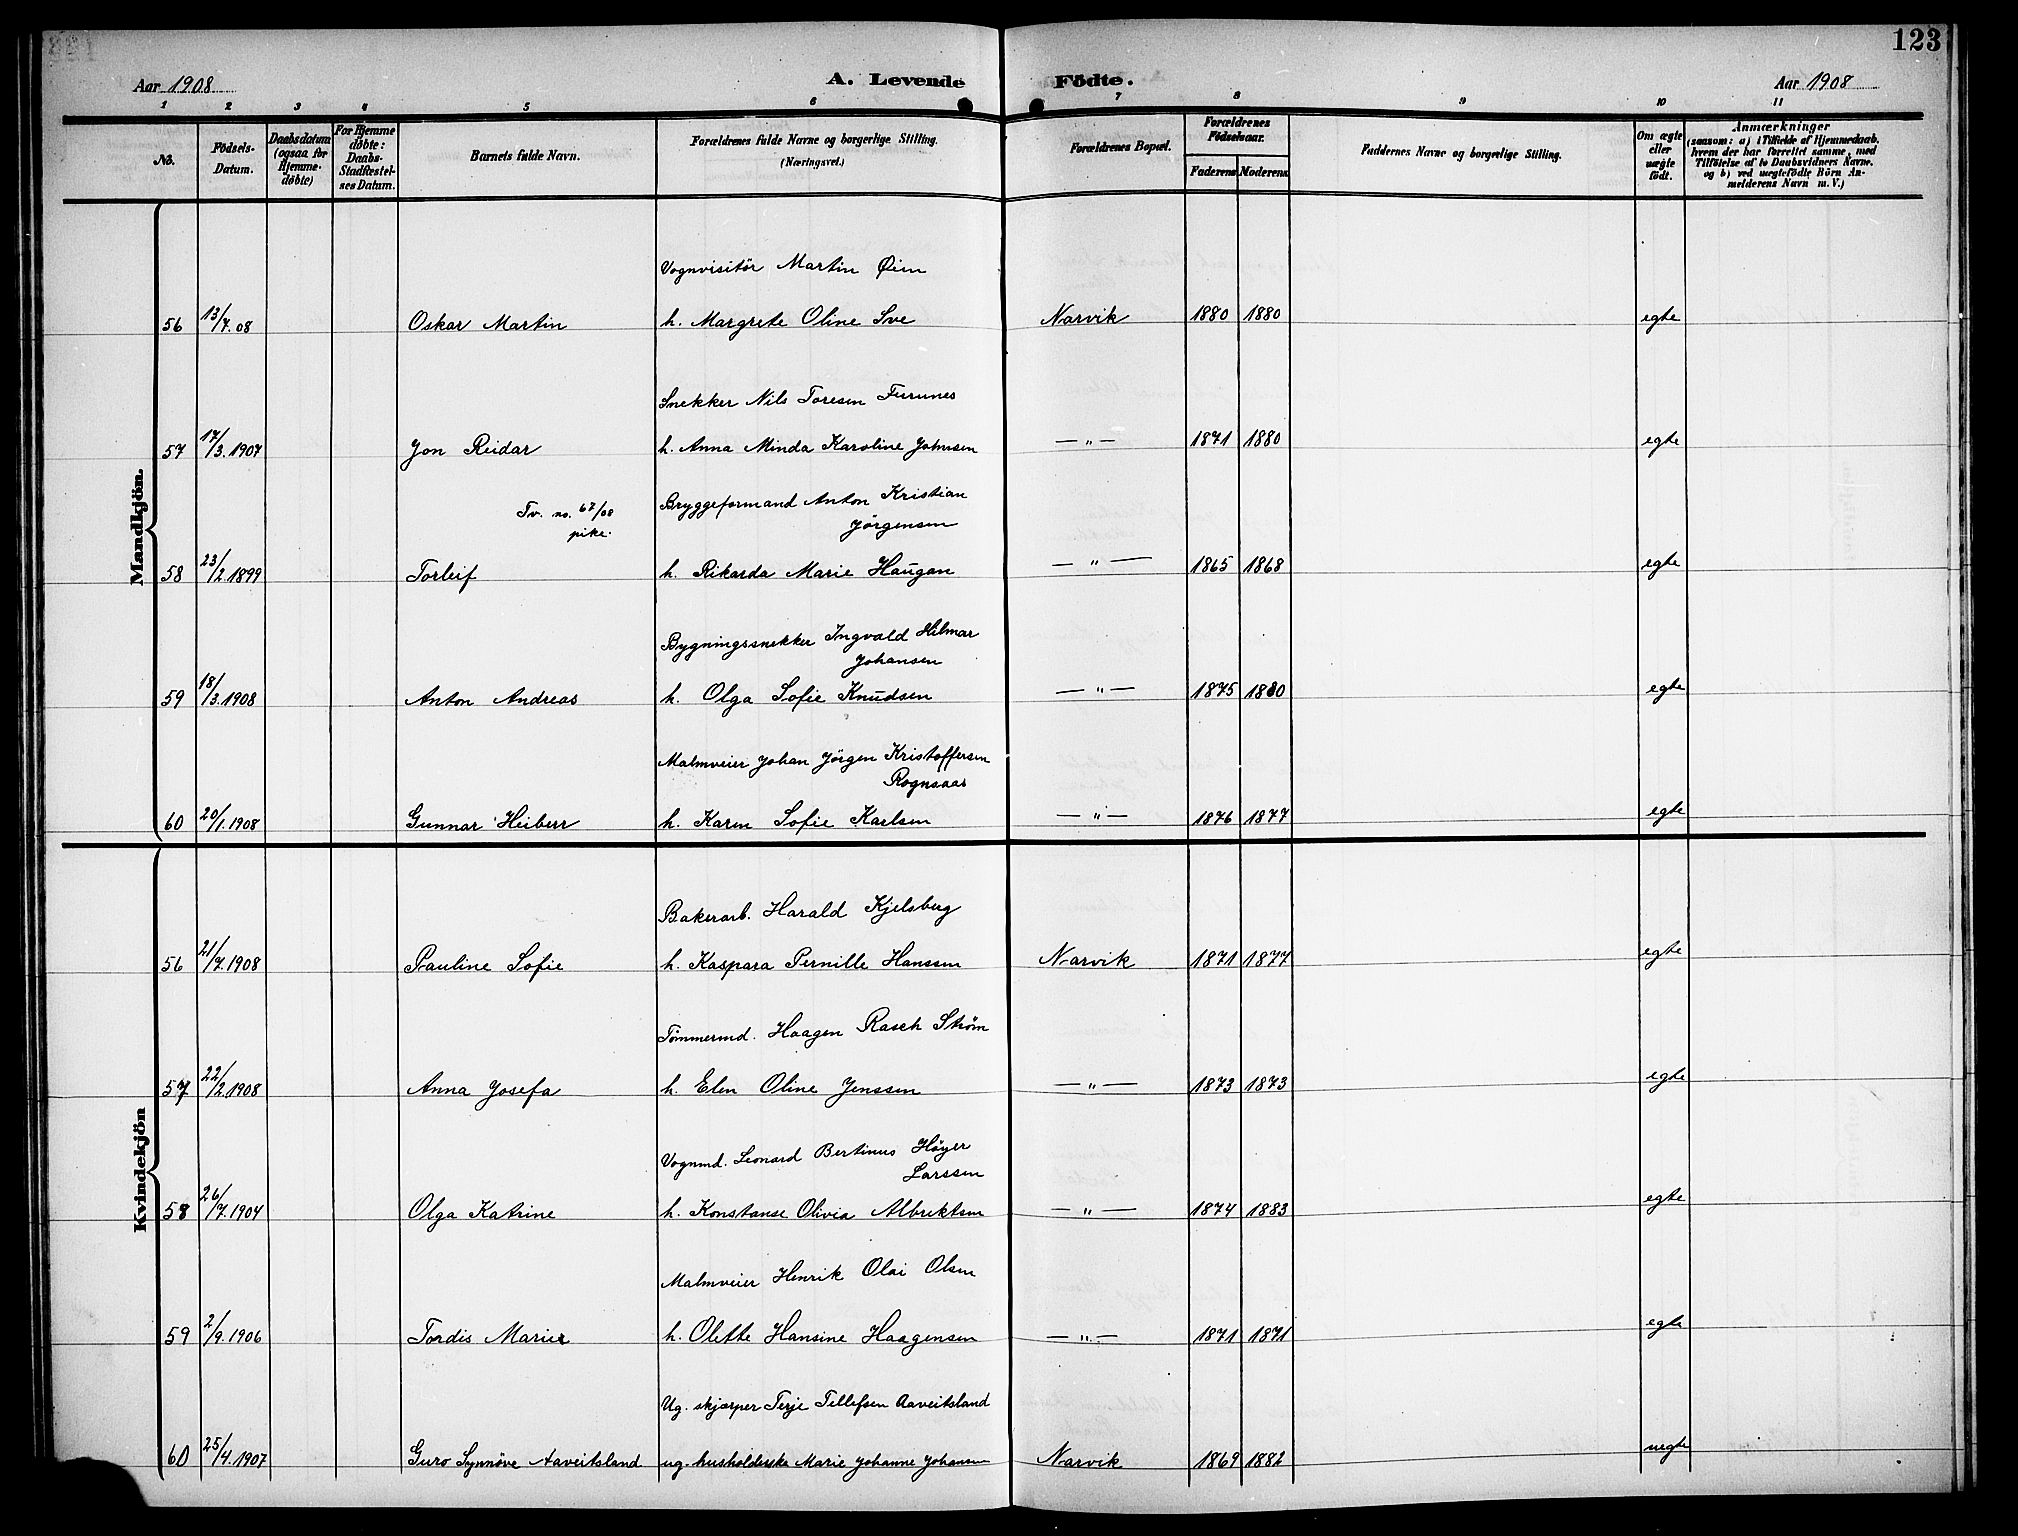 123
Aar 1908
A. Levende Födte.
Aar 1908
1 2 3 4 5 6 7 8 9 10 11
No.
Födsels-
Datum.
Daabsdatum
(ogsaa for
Hjemme-
döbte)
For Hjemme
döbte:
Daabs-
Stadfæstel-
ses Datum.
Barnets fulde Navn.
Forældrenes fulde Navne og borgerlige Stilling.
(Næringsvei.)
Forældrenes Bopæl.
Forældrenes
Födselsaar.
Faderens
Moderens
Faddernes Navne og borgerlige Stilling.
Om ægte
eller
uægte
födt.
Anmærkninger
(saasom: a) i Tilfælde af Hjemmedaab,
hvem der har forrettet samme, med
Tilföielse af to Daabsvidners Navne.
og b) ved uægtefödte Börn An-
melderens Navn m. V.)
Mandkjön.
Vognvisitör Martin Øien
56 13/7.08 Oskar Martin h. Margrete Oline Sve Narvik 1880 1880 egte
Snekker Nils Toresen Furunes
57 17/3.1907 Jon Reidar h. Anna Minda Karoline Johnsen — " — 1871 1880 egte
Tv. no. 67/08
pike.
Bryggeformand Anton Kristian
Jörgensen
58 23/2.1899 Torleif h. Rikarda Marie Haugan — " — 1865 1868 egte
Bygningssnekker Ingvald Hilmar
Johansen
59 18/3.1908 Anton Andreas h. Olga Sofie Knudsen — " — 1875 1880 egte
Malmveier Johan Jörgen Kristoffersen
Rognsaas
60 20/1.1908 Gunnar Heiberr h. Karen Sofie Karlsen — " — 1876 1877 egte
Kvindekjön
Bakerarb. Harald Kjelsberg
56 21/7.1908 Pauline Sofie h. Kaspara Pernille Hanssen Narvik 1871 1877 egte
Tömmermd. Haagen Rasch Ström
57 22/2.1908 Anna Josefa h. Elen Oline Jenssen — " — 1873 1873 egte
Vognmd. Leonard Bertinus Höyer
Larssen
58 26/7.1904 Olga Katrine h. Konstanse Olivia Albrektsen — " — 1874 1883 egte
Malmveier Henrik Olai Olsen
59 2/9.1906 Tordis Marie h. Olette Hansine Haagensen — " — 1871 1871 egte
Ug. skjærper Terje Tellefsen Aaveitsland
60 25/4.1907 Guro Synnöve Aaveitsland ug. husholderske Marie Johanne Johansen Narvik 1869 1882 uegte